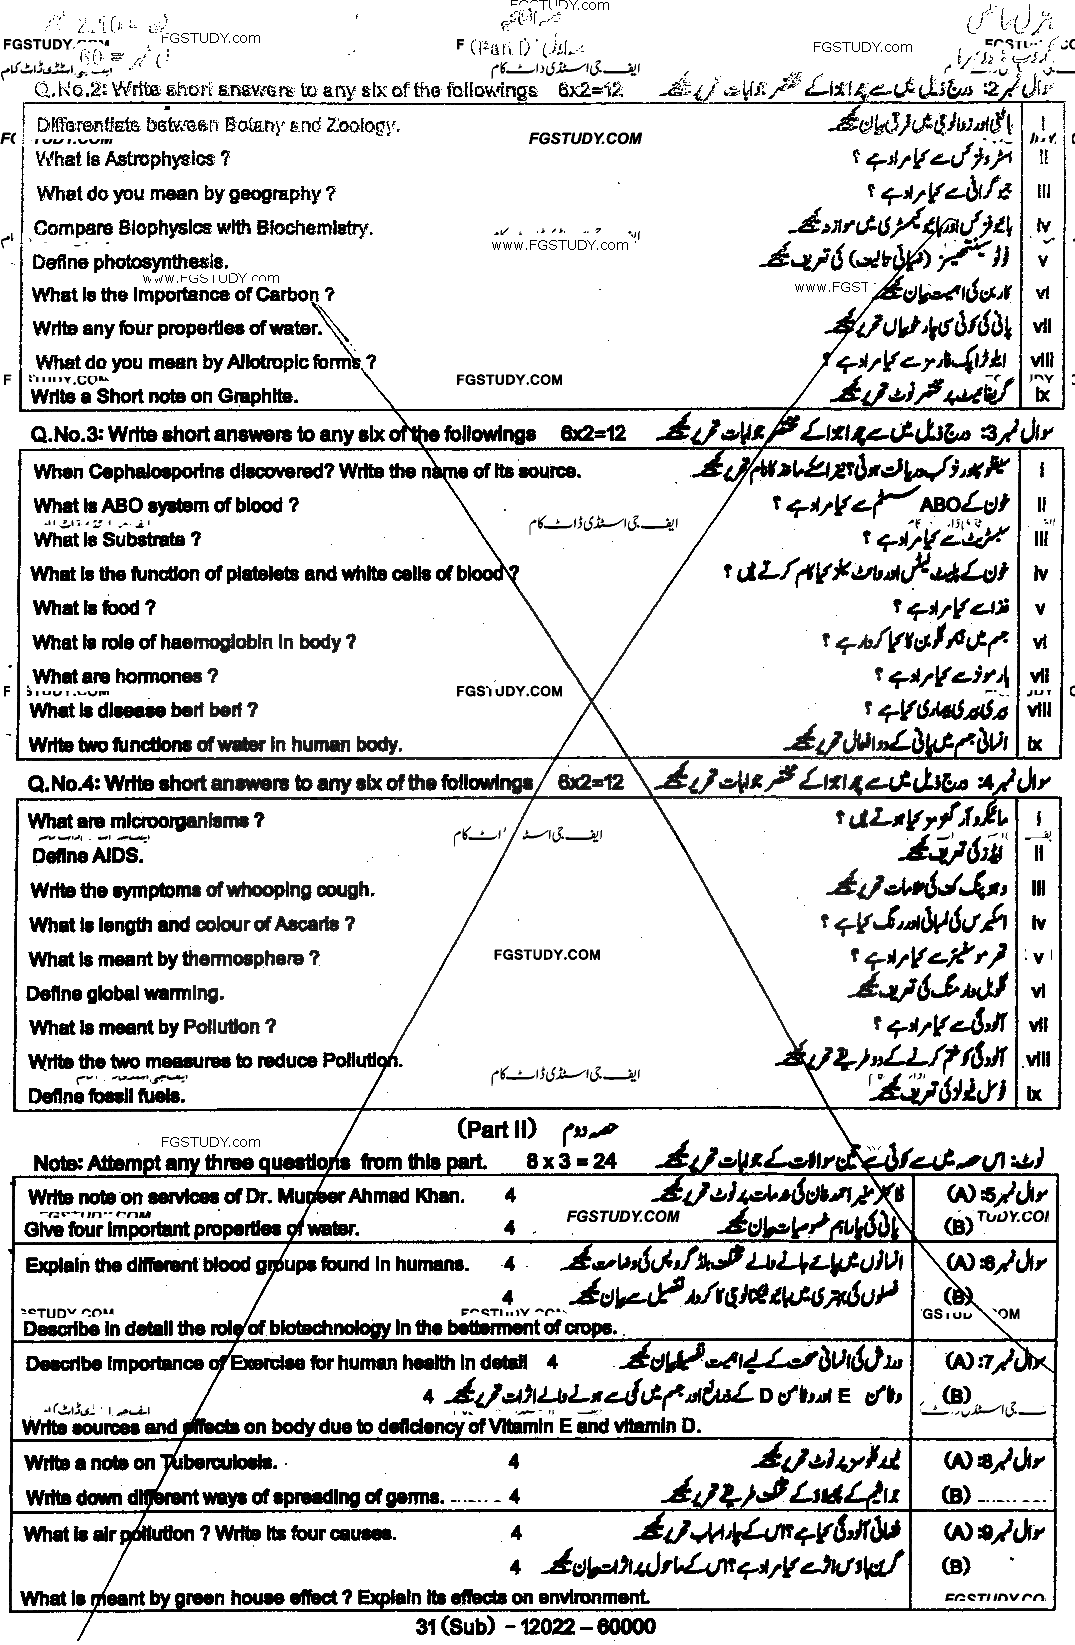 جنرل سائنس
FGSTUDY.com
(Part I) حصہ اول
FGSTUDY.com
FGSTUDY.COM
ایف جی اسٹڈی ڈاٹ کام
Q.No.2: Write short answers to any six of the followings 6x2=12 سوال نمبر 2: درج ذیل میں سے چھ اجزا کے مختصر جوابات تحریر کیجئے
Differentiate between Botany and Zoology. باٹنی اور زوالوجی میں فرق بیان کیجئے i
FGSTUDY.COM
What is Astrophysics ? اسٹروفزکس سے کیا مراد ہے ؟ ii
What do you mean by geography ? جیوگرافی سے کیا مراد ہے ؟ iii
Compare Biophysics with Biochemistry. بائیوفزکس اور بائیوکیمسٹری میں موازنہ کیجئے iv
www.FGSTUDY.COM
Define photosynthesis. فوٹوسینتھیسز (ضیائی تالیف) کی تعریف کیجئے v
www.FGSTUDY.COM
What is the importance of Carbon ? کاربن کی اہمیت بیان کیجئے vi
Write any four properties of water. پانی کی کوئی سی چار خوبیاں تحریر کیجئے vii
What do you mean by Allotropic forms ? ایلوٹراپک فارمز سے کیا مراد ہے ؟ viii
FGSTUDY.COM
Write a Short note on Graphite. گریفائیٹ پر مختصر نوٹ تحریر کیجئے ix
Q.No.3: Write short answers to any six of the followings 6x2=12 سوال نمبر 3: درج ذیل میں سے چھ اجزا کے مختصر جوابات تحریر کیجئے
When Cephalosporins discovered? Write the name of its source. سیفلوسپورنز کب دریافت ہوئی؟ نیز اسکے ماخذ کا نام تحریر کیجئے i
What is ABO system of blood ? خون کے ABO سسٹم سے کیا مراد ہے ؟ ii
ایف جی اسٹڈی ڈاٹ کام
What is Substrate ? سبسٹریٹ سے کیا مراد ہے ؟ iii
What is the function of platelets and white cells of blood ? خون کے پلیٹ لیٹس اور وائٹ سیلز کیا کام کرتے ہیں ؟ iv
What is food ? غذا سے کیا مراد ہے ؟ v
What is role of haemoglobin in body ? جسم میں ہیموگلوبن کا کیا کردار ہے ؟ vi
What are hormones ? ہارمونز سے کیا مراد ہے ؟ vii
FGSTUDY.COM
What is disease beri beri ? بیری بیری بیماری کیا ہے ؟ viii
Write two functions of water in human body. انسانی جسم میں پانی کے دو افعال تحریر کیجئے ix
Q.No.4: Write short answers to any six of the followings 6x2=12 سوال نمبر 4: درج ذیل میں سے چھ اجزا کے مختصر جوابات تحریر کیجئے
What are microorganisms ? مائیکرو آرگنزمز کیا ہوتے ہیں ؟ i
Define AIDS. ایڈز کی تعریف کیجئے ii
Write the symptoms of whooping cough. وہوپنگ کف کی علامات تحریر کیجئے iii
What is length and colour of Ascaris ? اسکیرس کی لمبائی اور رنگ کیا ہے ؟ iv
What is meant by thermosphere ? تھرموسفیئر سے کیا مراد ہے ؟ v
FGSTUDY.COM
Define global warming. گلوبل وارمنگ کی تعریف کیجئے vi
What is meant by Pollution ? آلودگی سے کیا مراد ہے ؟ vii
Write the two measures to reduce Pollution. آلودگی کو ختم کرنے کے دو طریقے تحریر کیجئے viii
ایف جی اسٹڈی ڈاٹ کام
Define fossil fuels. فوسل فیولز کی تعریف کیجئے ix
(Part II) حصہ دوم
FGSTUDY.com
Note: Attempt any three questions from this part. 8 x 3 = 24 نوٹ: اس حصہ میں سے کوئی سے تین سوالات کے جوابات تحریر کیجئے
Write note on services of Dr. Muneer Ahmad Khan. 4 ڈاکٹر منیر احمد خان کی خدمات پر نوٹ تحریر کیجئے (A) سوال نمبر 5:
FGSTUDY.COM
Give four important properties of water. 4 پانی کی چار اہم خصوصیات بیان کیجئے (B)
Explain the different blood groups found in humans. 4 انسانوں میں پائے جانے والے مختلف بلڈ گروپس کی وضاحت کیجئے (A) سوال نمبر 6:
4 فصلوں کی بہتری میں بائیوٹیکنالوجی کا کردار تفصیل سے بیان کیجئے (B)
Describe in detail the role of biotechnology in the betterment of crops.
Describe importance of Exercise for human health in detail 4 ورزش کی انسانی صحت کے لیے اہمیت تفصیلاً بیان کیجئے (A) سوال نمبر 7:
4 وٹامن E اور وٹامن D کے ذرائع اور جسم میں کمی سے ہونے والے اثرات تحریر کیجئے (B)
Write sources and effects on body due to deficiency of Vitamin E and vitamin D.
Write a note on Tuberculosis. 4 ٹیوبرکلوسز پر نوٹ تحریر کیجئے (A) سوال نمبر 8:
Write down different ways of spreading of germs. 4 جراثیم کے پھیلاؤ کے مختلف طریقے تحریر کیجئے (B)
What is air pollution ? Write its four causes. 4 فضائی آلودگی کیا ہے؟ اس کے چار اسباب تحریر کیجئے (A) سوال نمبر 9:
4 گرین ہاؤس اثر سے کیا مراد ہے؟ اس کے ماحول پر اثرات بیان کیجئے (B)
What is meant by green house effect ? Explain its effects on environment.
31 (Sub) - 12022 - 60000